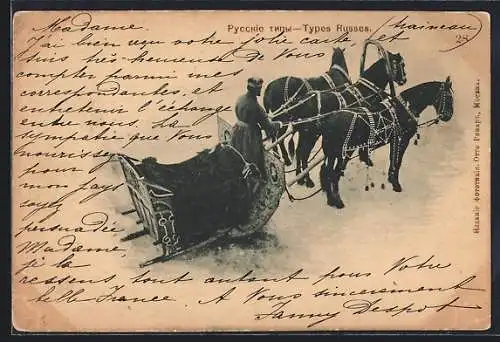 Русскіе типы—Types Russes.
(traineau)
28
Madame.
J'ai bien reçu votre jolie carte, et
suis très-heureuse de Vous
compter parmi mes
correspondantes, et
entretenir l'échange
entre nous. La
sympathie que Vous
nourrissez
pour
mon pays
soyez
persuadée
Madame,
je la
ressens, tout autant pour Votre
belle France. A Vous sincèrement
Fanny Despot
Изданіе фототипіи Отто Ренаръ, Москва.